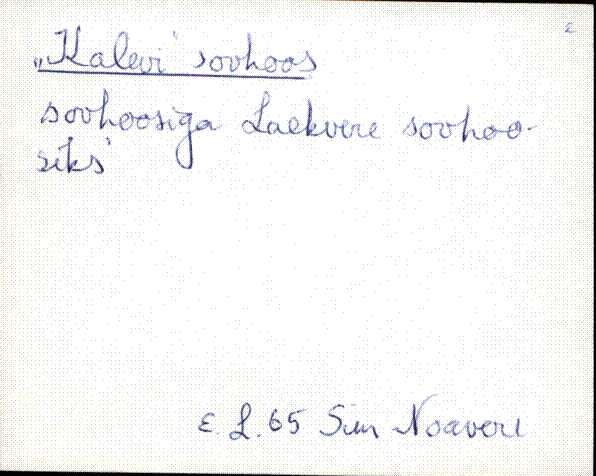 2
„Kalevi" sovhoos
sovhoosiga Laekvere sovhoo-
siks"
E. L. 65 Sim Noavere